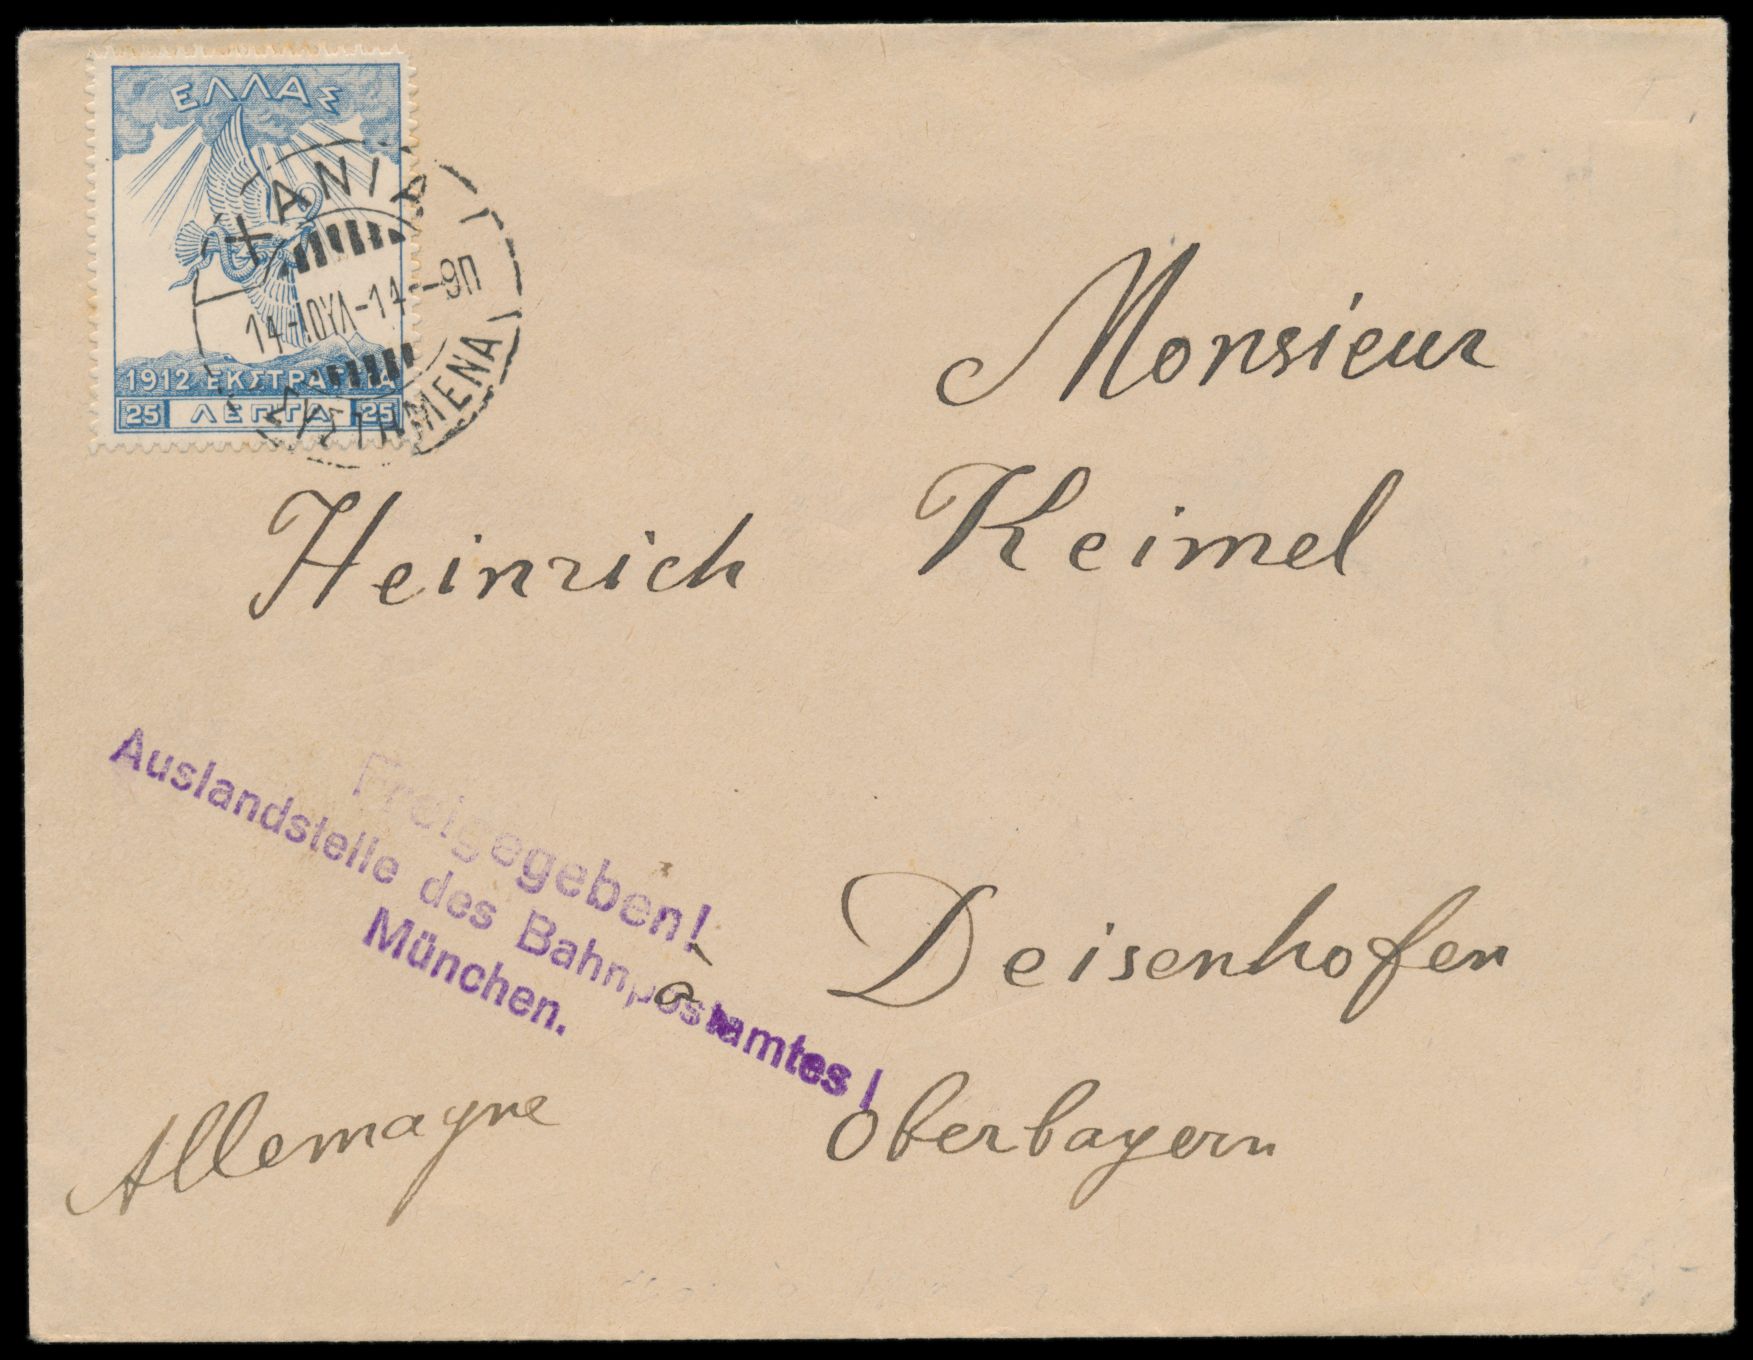 ΕΛΛΑΣ
ΧΑΝΙΑ
14-ΙΟΥΛ-14-9Π
ΣΥΣΤΗΜΕΝΑ
1912 ΕΚΣΤΡΑΤΕΙΑ
25 ΛΕΠΤΑ 25
Monsieur
Heinrich Keimel
Freigegeben!
Auslandstelle des Bahnpostamtes!
München.
à Deisenhofen
Oberbayern
Allemagne